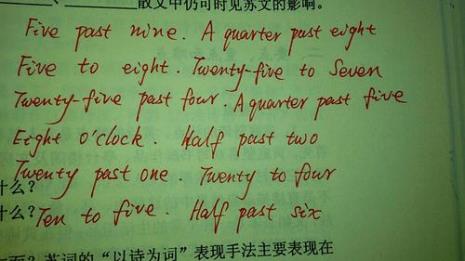 散文中仍可时见苏文的影响。
Five past nine. A quarter past eight
Five to eight. Twenty-five to Seven
Twenty-five past four. A quarter past five
Eight o'clock. Half past two
Twenty past one. Twenty to four
什么？
什么？Ten to five. Half past six
苏词的“以诗为词”表现手法主要表现在